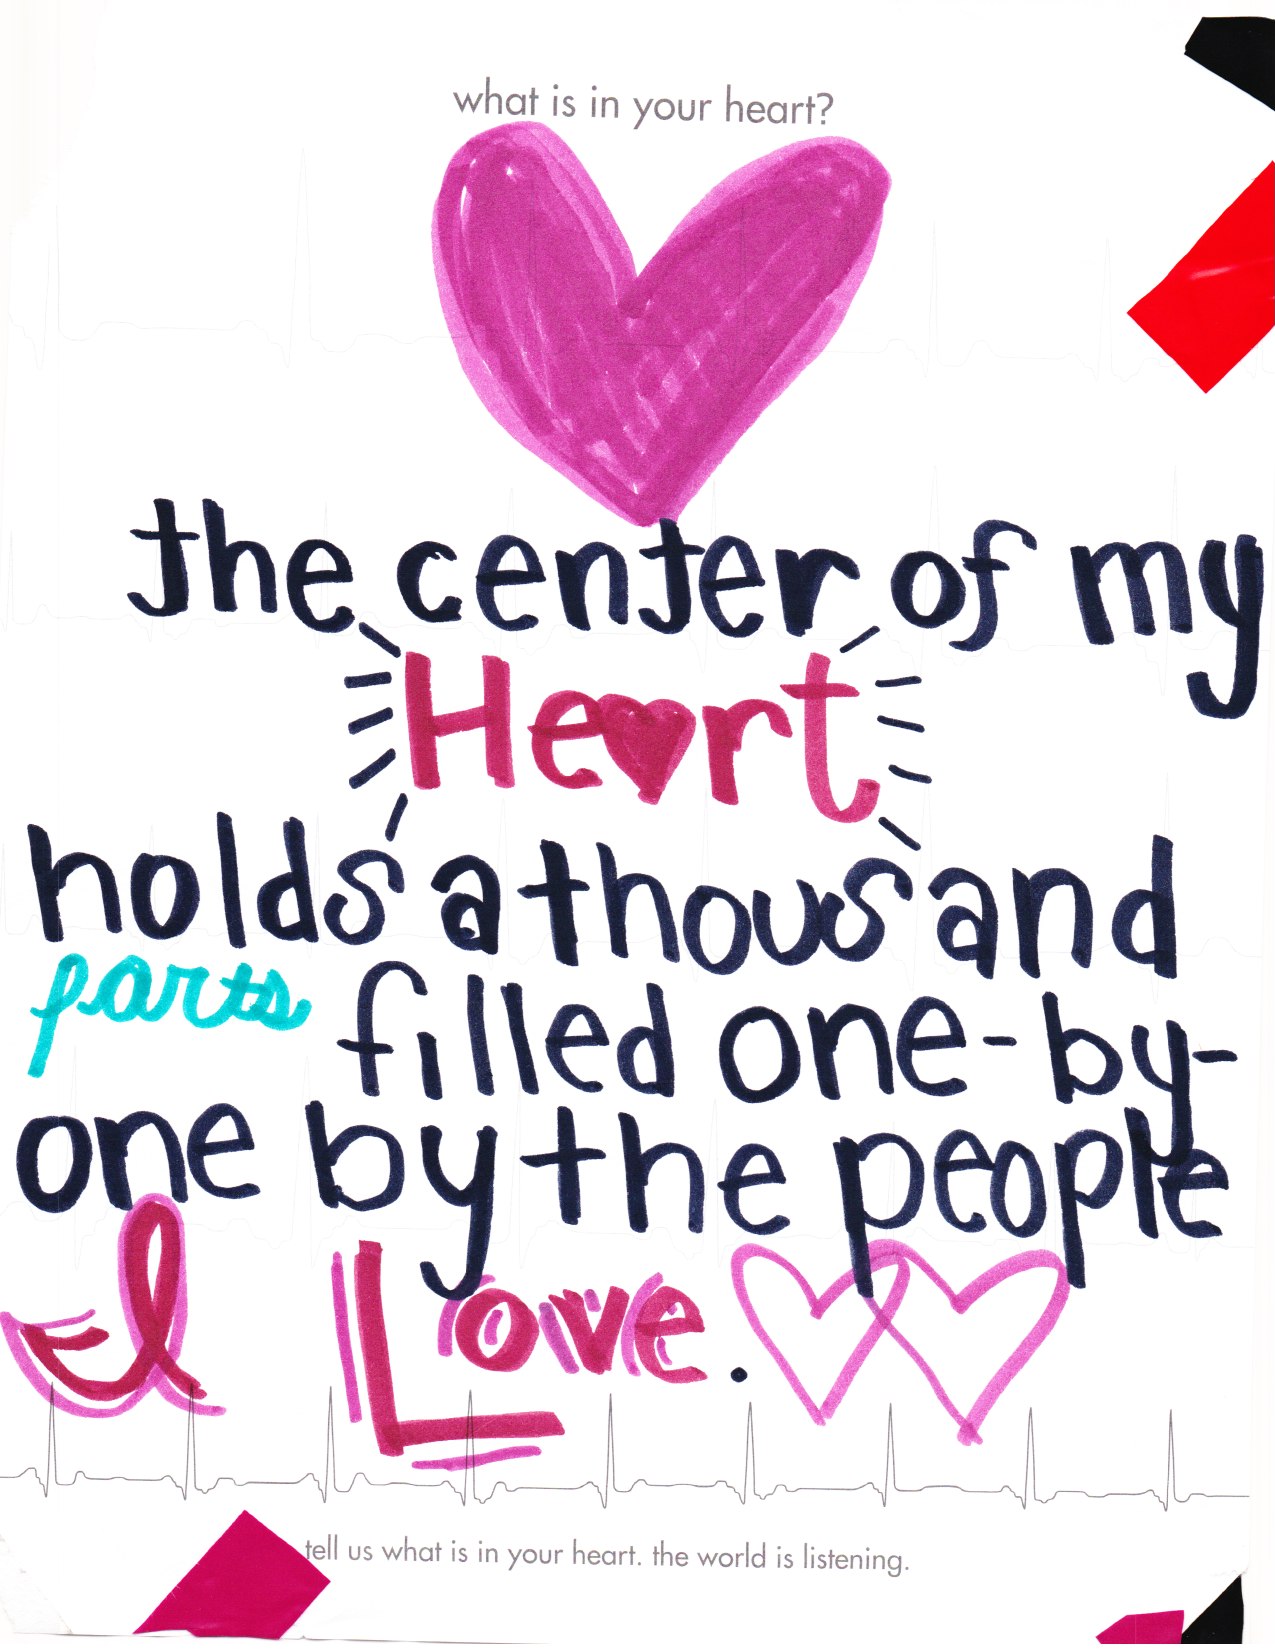 what is in your heart?
the center of my
Heart
holds a thousand
parts filled one-by-
one by the people
I Love.
tell us what is in your heart. the world is listening.